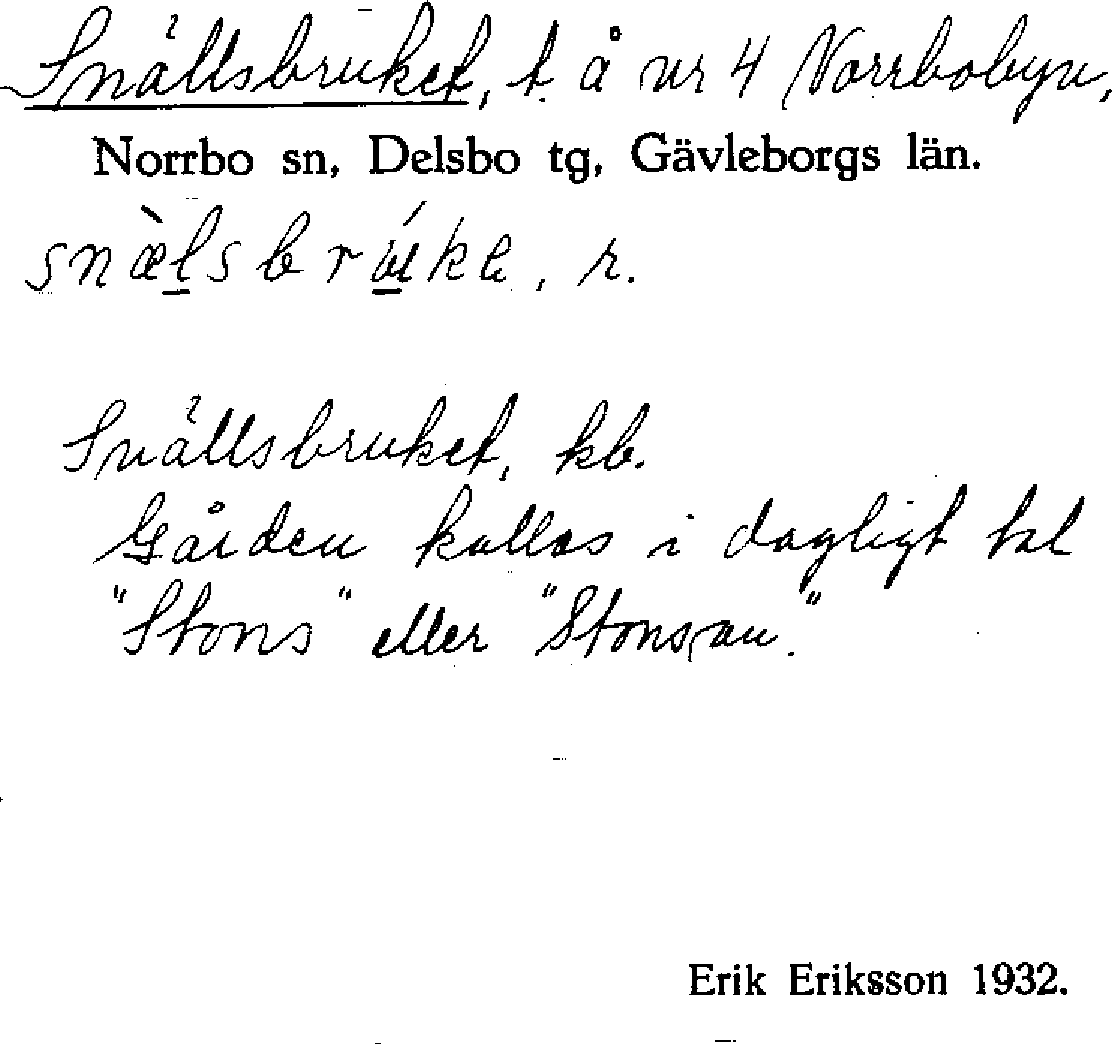 Snällsbruket, t. å nr 4 Norrbobyn,
Norrbo sn, Delsbo tg, Gävleborgs län.
snæ̀lsbrúke, r.
Snällsbruket, kb.
Gården kallas i dagligt tal
"Stons" eller "Stonsan."
Erik Eriksson 1932.